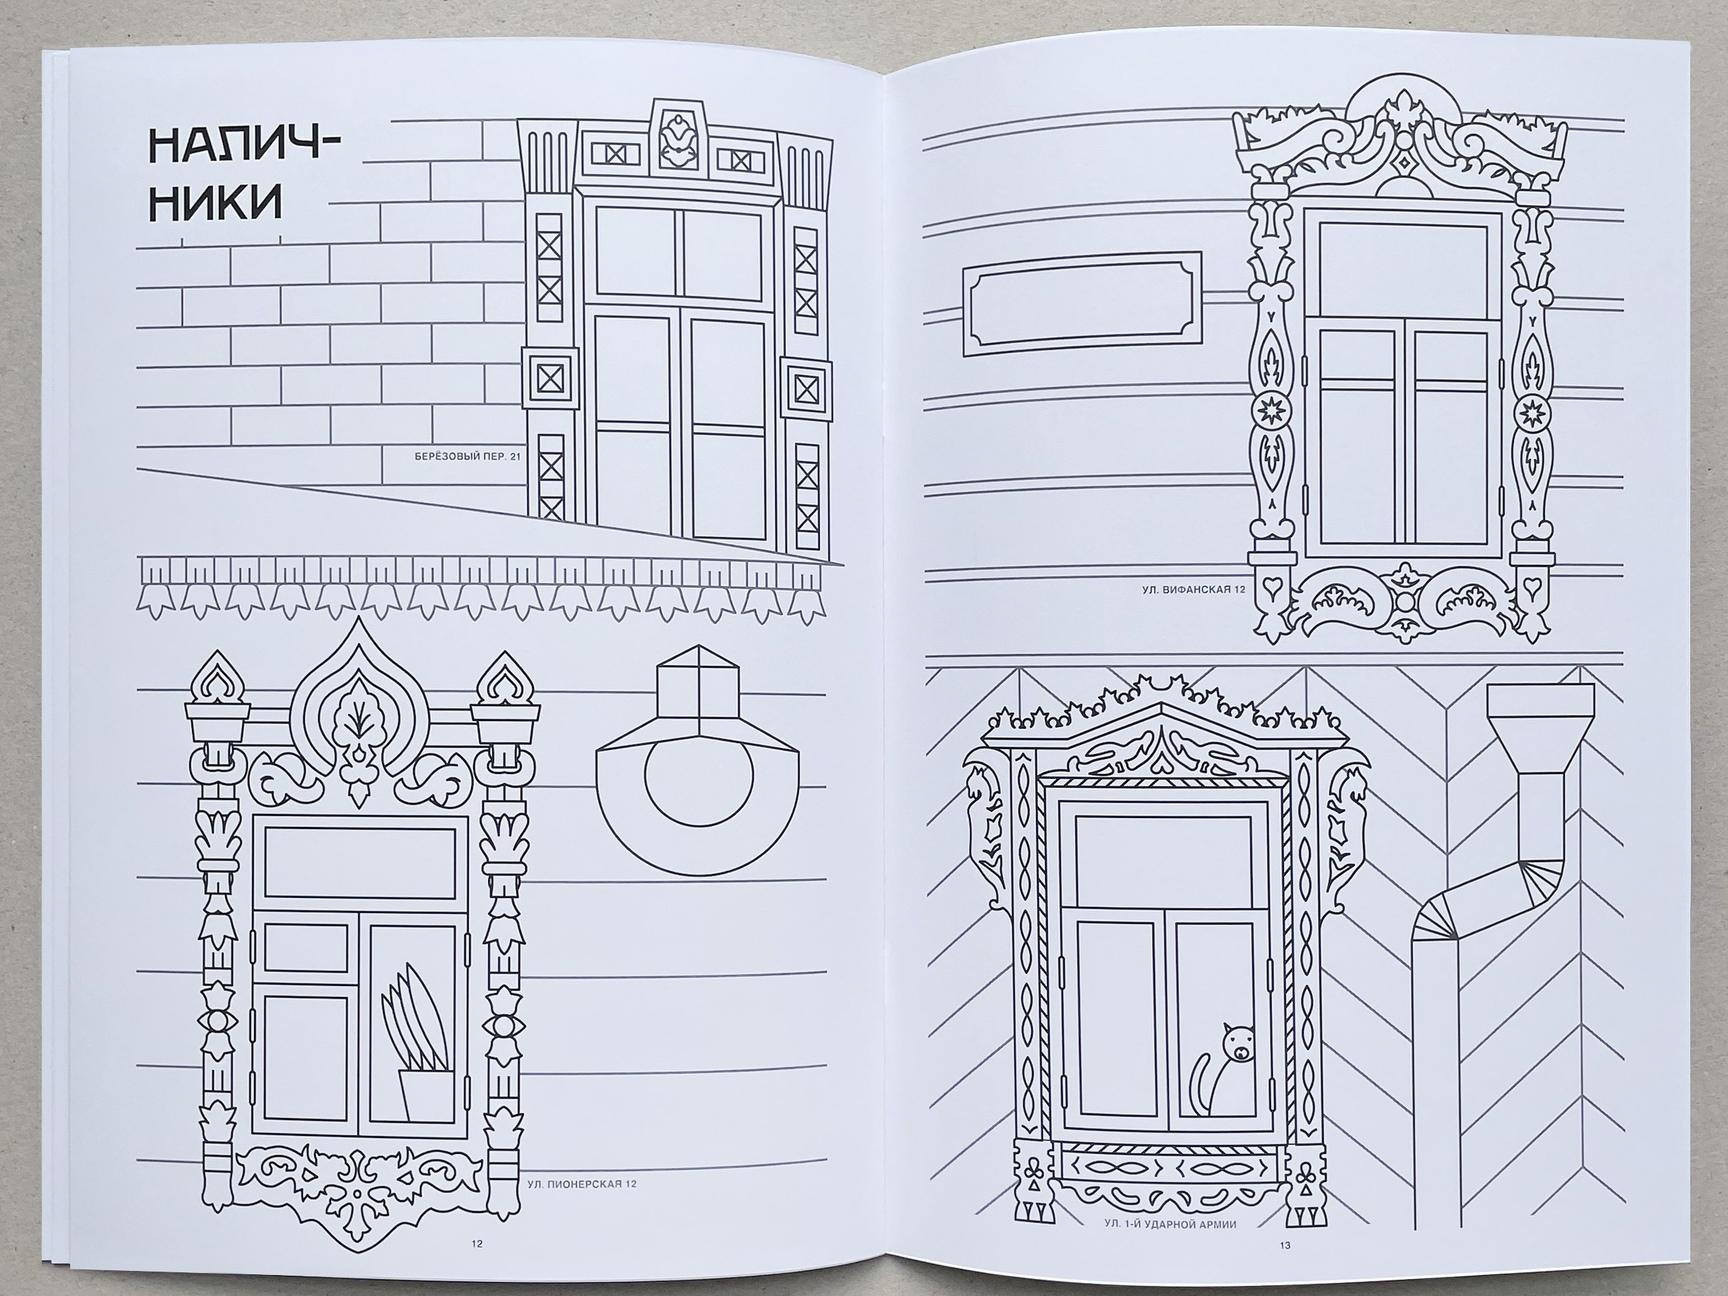 НАЛИЧ-
НИКИ
БЕРЁЗОВЫЙ ПЕР. 21
УЛ. ПИОНЕРСКАЯ 12
12
УЛ. ВИФАНСКАЯ 12
УЛ. 1-Й УДАРНОЙ АРМИИ
13